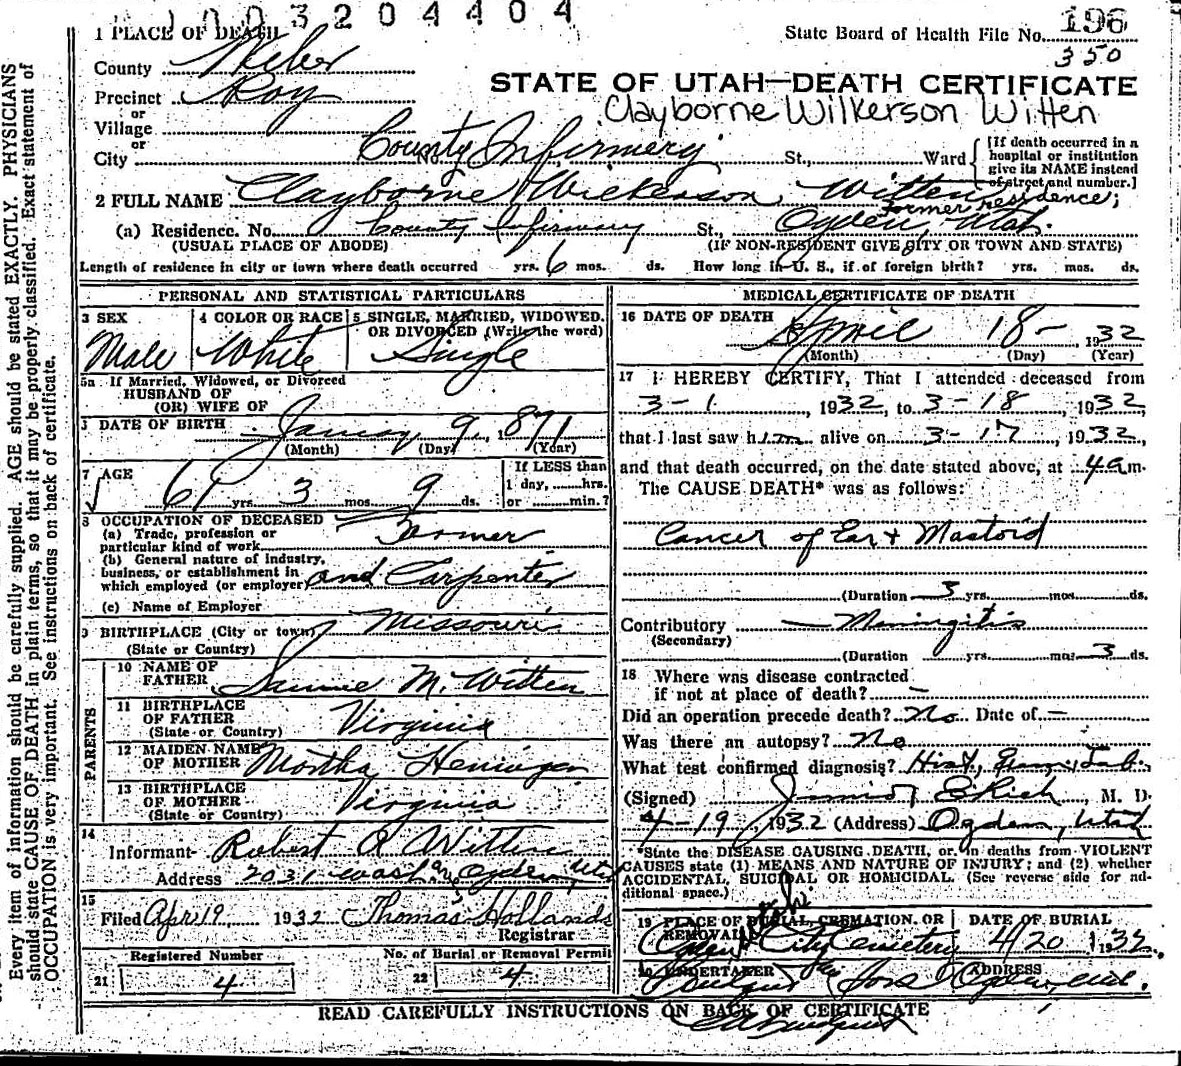 1003204404
1 PLACE OF DEATH
State Board of Health File No. 196
350
County Weber
STATE OF UTAH—DEATH CERTIFICATE
Precinct Roy
or
Clayborne Wilkerson Witten
Village
or
City County Infirmery No. St., Ward
[If death occurred in a hospital or institution give its NAME instead of street and number.]
2 FULL NAME Clayborne Wilkerson Witten
former residence;
(a) Residence. No. County Infirmary St., Ogden, Utah.
(USUAL PLACE OF ABODE) (IF NON-RESIDENT GIVE CITY OR TOWN AND STATE)
Length of residence in city or town where death occurred yrs. 6 mos. ds. How long in U. S., if of foreign birth? yrs. mos. ds.
PERSONAL AND STATISTICAL PARTICULARS
3 SEX 4 COLOR OR RACE 5 SINGLE, MARRIED, WIDOWED, OR DIVORCED (Write the word)
Male White Single
5a If Married, Widowed, or Divorced
HUSBAND OF
(OR) WIFE OF
DATE OF BIRTH January 9, 1871
(Month) (Day) (Year)
7 AGE
61 yrs. 3 mos. 9 ds.
If LESS than
1 day, hrs.
or min.?
8 OCCUPATION OF DECEASED
(a) Trade, profession or
particular kind of work Farmer
(b) General nature of industry,
business, or establishment in
which employed (or employer) and Carpenter
(c) Name of Employer
9 BIRTHPLACE (City or town) Missouri
(State or Country)
PARENTS
10 NAME OF
FATHER M. Witten
11 BIRTHPLACE
OF FATHER Virginia
(State or Country)
12 MAIDEN NAME
OF MOTHER Martha
13 BIRTHPLACE
OF MOTHER Virginia
(State or Country)
14
Informant Robert Witten
Address 2031 Ogden, Utah
15
Filed Apr 19, 1932 Thomas Hollands
Registrar
Registered Number No. of Burial or Removal Permit
21 4 22 4
MEDICAL CERTIFICATE OF DEATH
16 DATE OF DEATH
April 18 - 1932
(Month) (Day) (Year)
17 I HEREBY CERTIFY, That I attended deceased from
3-1, 1932, to 3-18, 1932,
that I last saw him alive on 3-17, 1932,
and that death occurred, on the date stated above, at 4 a m.
The CAUSE DEATH* was as follows:
Cancer of Ear + Mastoid
(Duration 3 yrs. mos. ds.
Contributory Meningitis
(Secondary)
(Duration yrs. mos. 3 ds.
18 Where was disease contracted
if not at place of death? —
Did an operation precede death? No Date of —
Was there an autopsy? No
What test confirmed diagnosis? Hist, Lab.
(Signed) Junior E Rich, M. D.
4-19, 1932 (Address) Ogden, Utah
*State the DISEASE CAUSING DEATH, or, in deaths from VIOLENT
CAUSES state (1) MEANS AND NATURE OF INJURY; and (2) whether
ACCIDENTAL, SUICIDAL OR HOMICIDAL. (See reverse side for ad-
ditional space.)
19 PLACE OF BURIAL, CREMATION, OR REMOVAL DATE OF BURIAL
Ogden City Cemetery 4/20 1932
UNDERTAKER ADDRESS
Sons Ogden,
READ CAREFULLY INSTRUCTIONS ON BACK OF CERTIFICATE
Every item of information should be carefully supplied. AGE should be stated EXACTLY. PHYSICIANS
should state CAUSE OF DEATH in plain terms, so that it may be properly classified. Exact statement of
OCCUPATION is very important. See instructions on back of certificate.